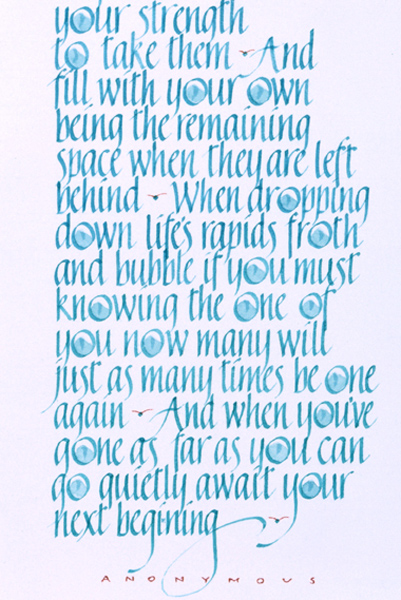 your strength
to take them And
fill with your own
being the remaining
space when they are left
behind When dropping
down life's rapids froth
and bubble if you must
knowing the one of
you now many will
just as many times be one
again And when you've
gone as far as you can
go quietly await your
next begining
ANONYMOUS